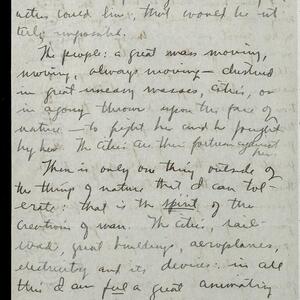 could him, that would be ut
terly impossible.
The people: a great mass moving,
moving, always moving — clustered
in great uneasy masses, cities, or
in agony thrown upon the face of
nature — to fight her and be fought
by her. The cities are their fortress against
her.
There is only one thing outside of
the thing of nature that I can tol-
erate: that is the spirit of the
creations of man. The cities, rail-
road, great buildings, aeroplanes,
electricity and its devices: in all
this I can feel a great animating